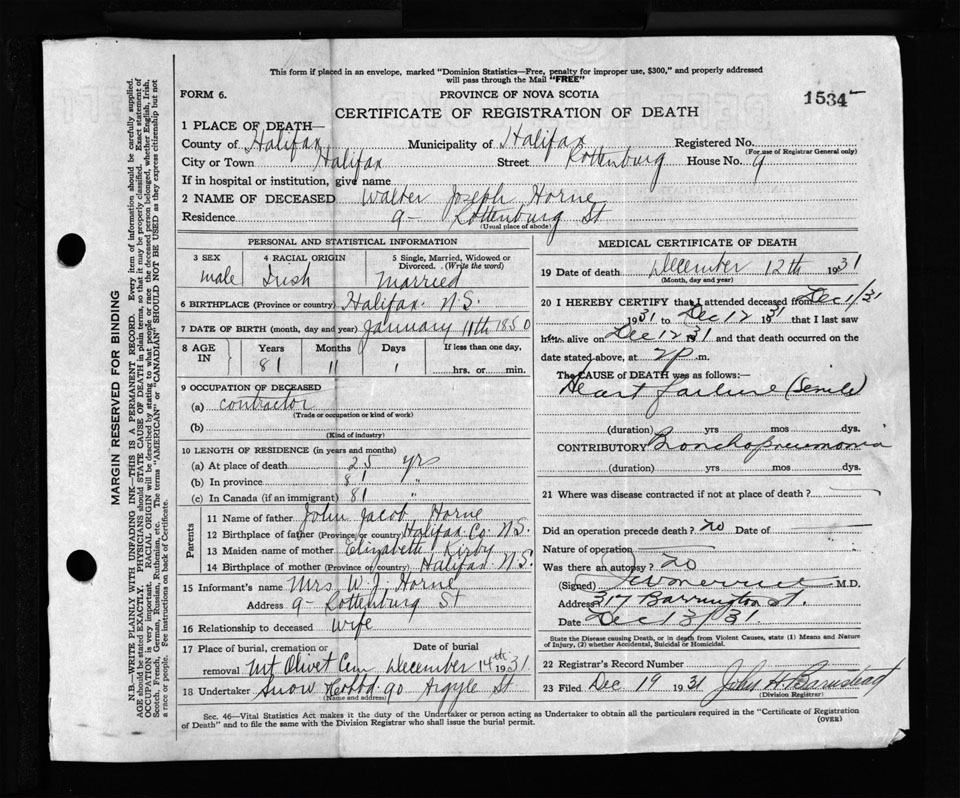 This form if placed in an envelope, marked "Dominion Statistics—Free, penalty for improper use, $300," and properly addressed
will pass through the Mail "FREE"
FORM 6.
PROVINCE OF NOVA SCOTIA
1534
CERTIFICATE OF REGISTRATION OF DEATH
1 PLACE OF DEATH—
County of Halifax Municipality of Halifax Registered No.
(For use of Registrar General only)
City or Town Halifax Street Rottenburg House No. 9
If in hospital or institution, give name
2 NAME OF DECEASED Walter Joseph Horne
Residence 9- Rottenburg St
(Usual place of abode)
PERSONAL AND STATISTICAL INFORMATION
3 SEX 4 RACIAL ORIGIN 5 Single, Married, Widowed or
Divorced. (Write the word)
male Irish Married
6 BIRTHPLACE (Province or country) Halifax N.S.
7 DATE OF BIRTH (month, day and year) January 11th 1850
8 AGE IN Years Months Days If less than one day,
81 11 1 hrs. or min.
9 OCCUPATION OF DECEASED
(a) contractor
(Trade or occupation or kind of work)
(b)
(Kind of industry)
10 LENGTH OF RESIDENCE (in years and months)
(a) At place of death 25 yrs
(b) In province 81 "
(c) In Canada (if an immigrant) 81 "
Parents
11 Name of father John Jacob Horne
12 Birthplace of father (Province or country) Halifax Co N.S.
13 Maiden name of mother Elizabeth Kirby
14 Birthplace of mother (Province or country) Halifax N.S.
15 Informant's name Mrs W. J. Horne
Address 9- Rottenburg St
16 Relationship to deceased wife
17 Place of burial, cremation or Date of burial
removal Mt Olivet Cem December 14th 1931
18 Undertaker Snow 90 Argyle St
(Name and address)
MEDICAL CERTIFICATE OF DEATH
19 Date of death December 12th 1931
(Month, day and year)
20 I HEREBY CERTIFY that I attended deceased from Dec 1/31
1931 to Dec 12 1931 that I last saw
him alive on Dec 12 1931 and that death occurred on the
date stated above, at 2 p. m.
The CAUSE of DEATH was as follows:—
Heart failure (Senile)
(duration) yrs mos dys.
CONTRIBUTORY Bronchopneumonia
(duration) yrs mos dys.
21 Where was disease contracted if not at place of death?
Did an operation precede death? no Date of
Nature of operation
Was there an autopsy? no
(Signed) M.D.
Address 317 Barrington St.
Date Dec 13/31
State the Disease causing Death, or in death from Violent Causes, state (1) Means and Nature
of Injury, (2) whether Accidental, Suicidal or Homicidal.
22 Registrar's Record Number
23 Filed Dec 19 1931 John H Barnstead
(Division Registrar)
Sec. 46—Vital Statistics Act makes it the duty of the Undertaker or person acting as Undertaker to obtain all the particulars required in the "Certificate of Registration
of Death" and to file the same with the Division Registrar who shall issue the burial permit.
(OVER)
MARGIN RESERVED FOR BINDING
N.B.—WRITE PLAINLY WITH UNFADING INK—THIS IS A PERMANENT RECORD. Every item of information should be carefully supplied.
AGE should be stated EXACTLY. PHYSICIANS should STATE CAUSE OF DEATH in plain terms, so that it may be properly classified. Exact statement of
OCCUPATION is very important. RACIAL ORIGIN will be described by stating to what people or race the deceased person belonged, whether English, Irish,
Scotch, French, German, Russian, Ruthenian, etc. The terms "AMERICAN" or "CANADIAN" SHOULD NOT BE USED as they express citizenship but not
a race or people. See instructions on back of Certificate.